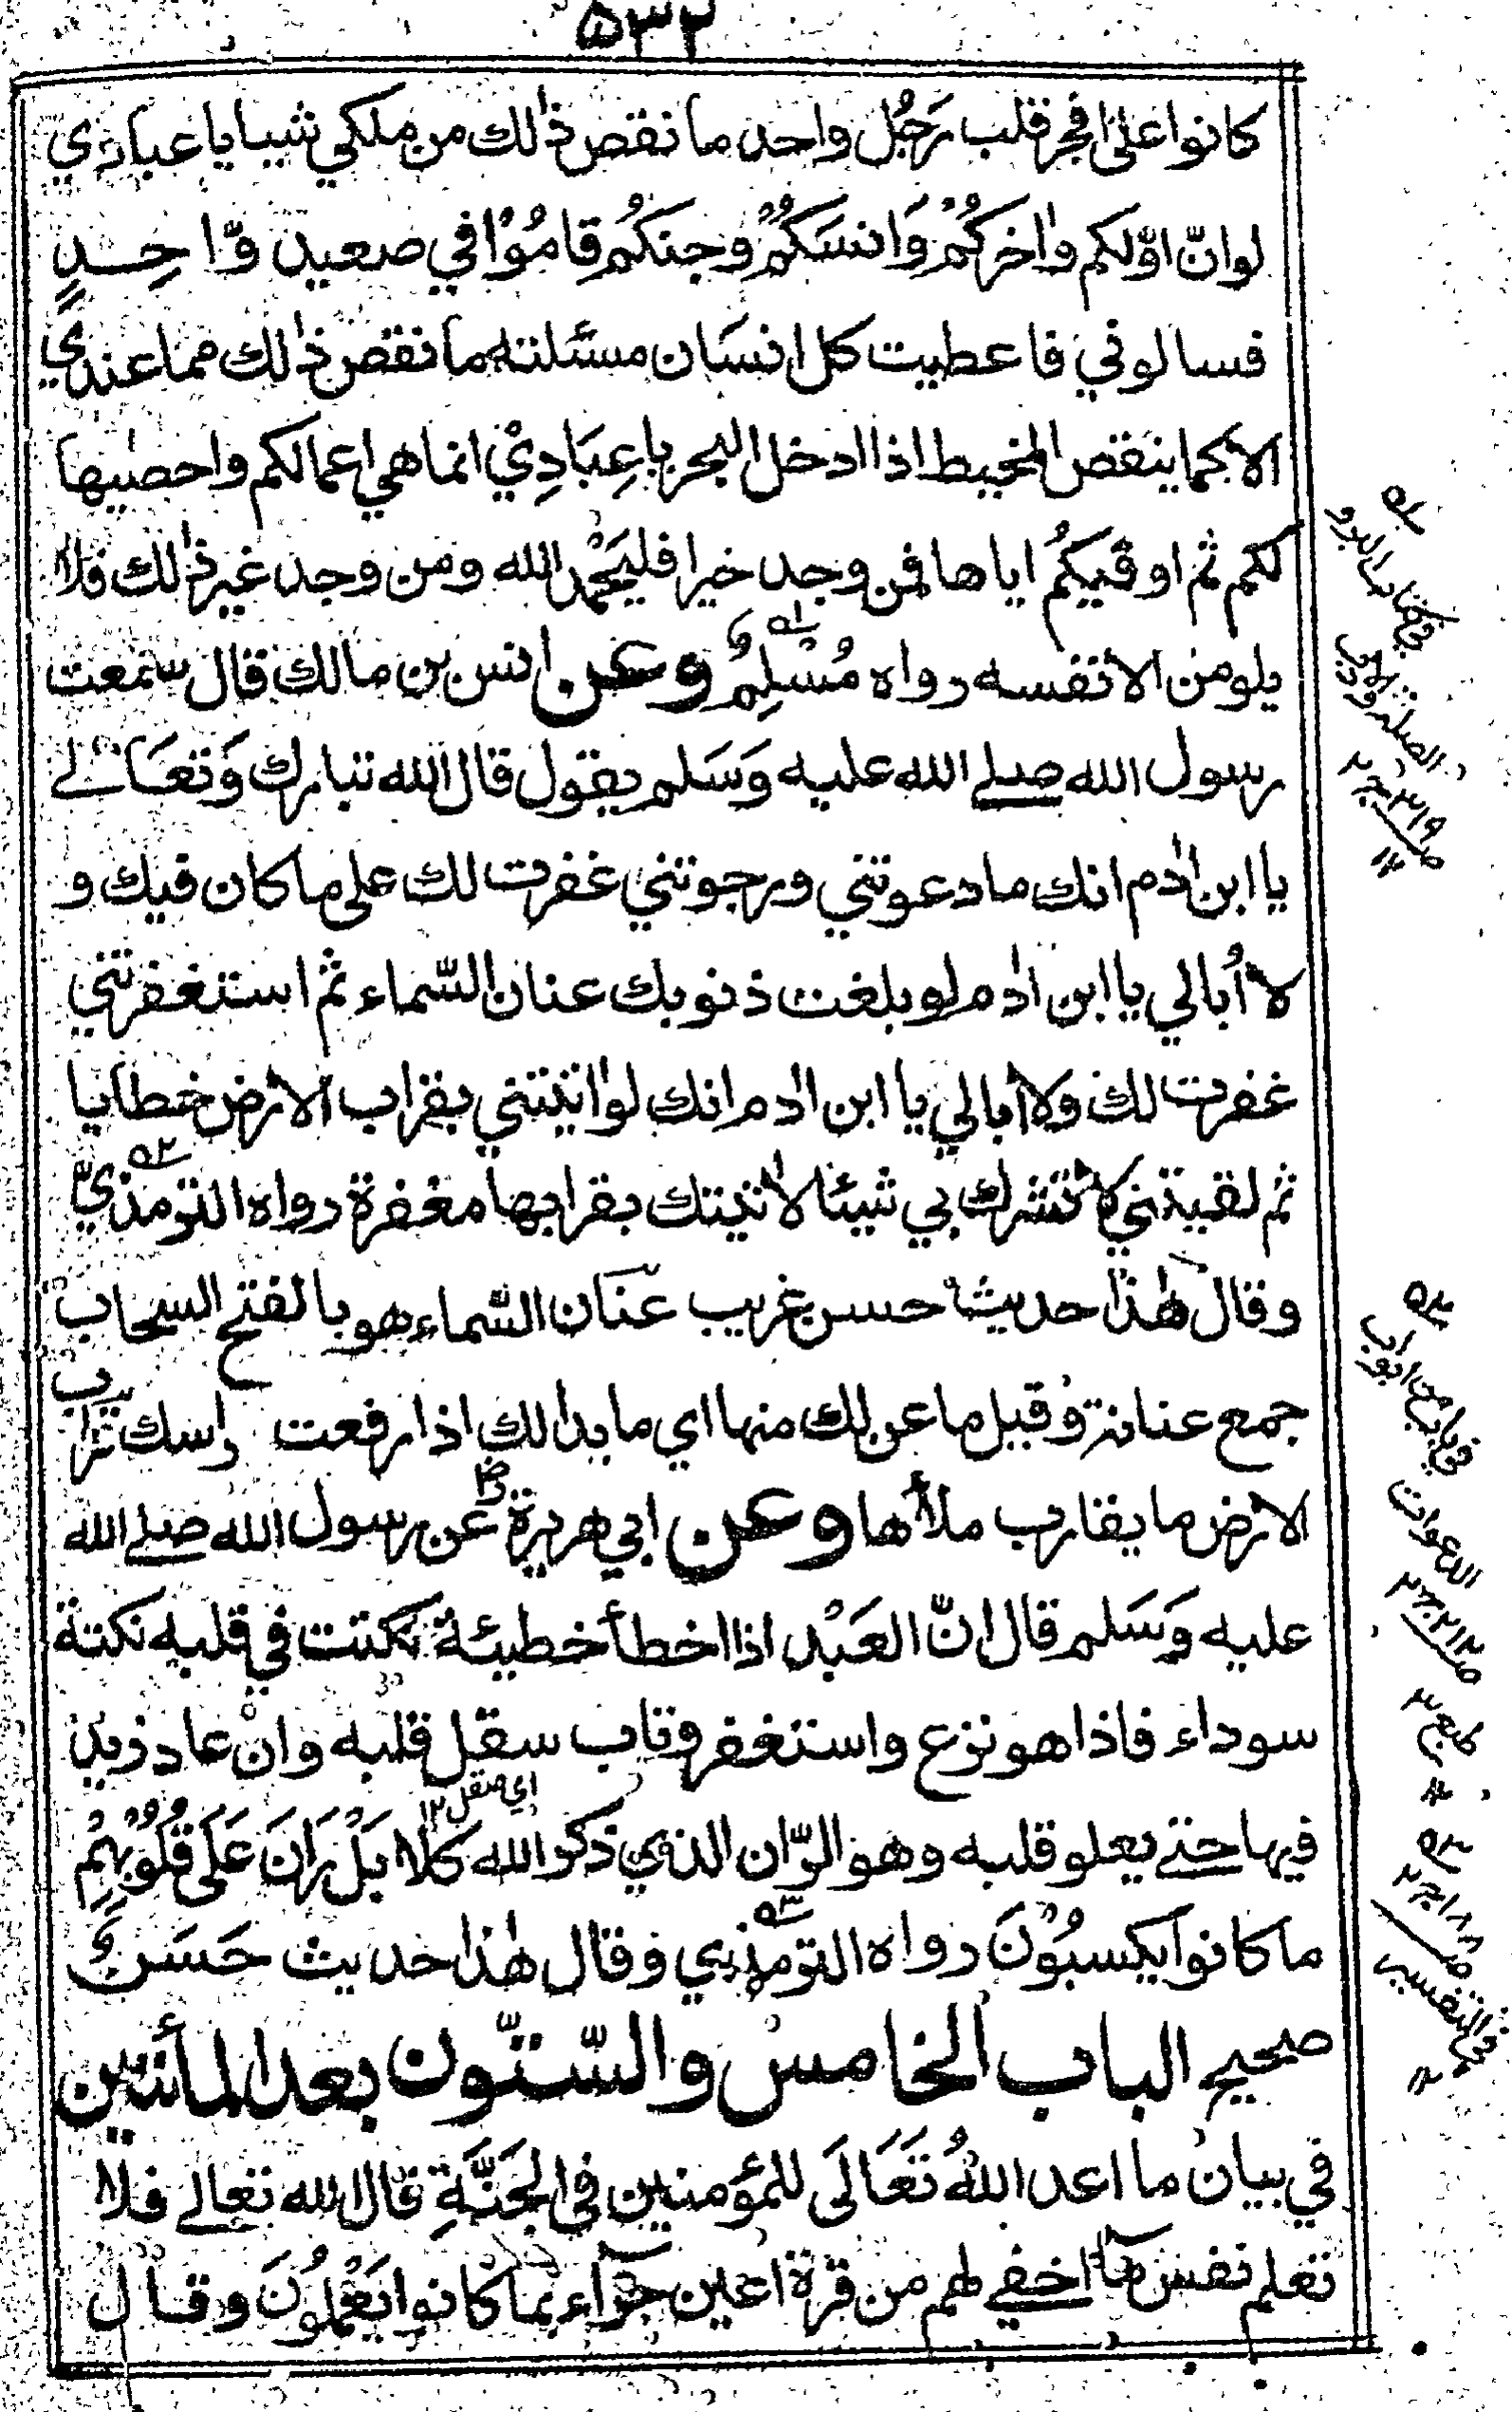 ۵۳۲
كانوا على افجر قلب رجُل واحد ما نقص ذٰلك من ملكي شيبا يا عبادي
لو انّ اوّلكم واٰخركُمْ وَانسَكُمْ وجنكُم قامُوْا في صعيد وّاحِدٍ
فسالوني فاعطيت كل انسَان مسئلته ما نقص ذٰلك مما عندي
الا كما ينقص المخيط اذا ادخل البحر يا عِبَادِيْ انما هي اعمالكم واحصيها
لكم ثم اوفيكُم اياها فمن وجد خيرا فليَحْمَد الله ومن وجد غير ذٰلك فلا
يلومن الا نفسه رواه مُسْلِمٌ وعن انس بن مالك قال سمعت
رسول الله صلے الله عليه وَسَلم يقول قال الله تبارك وَتعَالے
يا ابن اٰدم انك ما دعوتني ورجوتني غفرت لك على ما كان فيك و
لا أُبالي يا ابن اٰدم لو بلغت ذنوبك عنان السّماء ثم استغفرتني
غفرت لك ولا أبالي يا ابن اٰدم انك لو اتيتني بقراب الارض خطايا
ثم لقيتني لا تشرك بي شيئا لاتيتك بقرابها مغفرة رواه الترمذيّ
وقال هٰذا حديث حسن غريب عنَان السّماء هو بالفتح السحاب
جمع عنانة وقيل ما عن لك منها اي ما بدا لك اذا رفعت راسك قراب
الارض ما يقارب ملأها وعن ابي هريرة رض عن رسول الله صلے الله
عليه وَسَلم قال انّ العَبْد اذا اخطأ خطيئة نكتت في قلبه نكتة
سوداء فاذا هو نزع واستغفر وتاب سقل قلبه وانْ عاد زيد
اي صقل ۱۲
فيها حتے يعلو قلبه وهو الرّان الذي ذكر الله كلّا بَلْ رَانَ عَلَى قُلُوْبِهِمْ
ما كانوا يكسبُوْنَ رواه الترمذي وقال هٰذا حديث حَسَن
صحيح الباب الخامس والسّتّون بعد المأتين
في بيان ما اعد اللهُ تَعَالَى للمؤمنين في الجَنَّةِ قال الله تعالے فلا
تعلم نفس مآ اخفے لهم من قرة اعين جزآء بما كانوا يَعْملُوْنَ وقال
الصلة و
ص۳۱۹ ج۲
۱۲
في باب من ابواب
الدعوات
ص۲۱۲ ج۲
في التفسير
۱۲